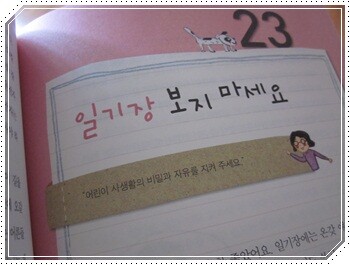 23
일기장 보지 마세요
"어린이 사생활의 비밀과 자유를 지켜 주세요."
일기장에는 온갖